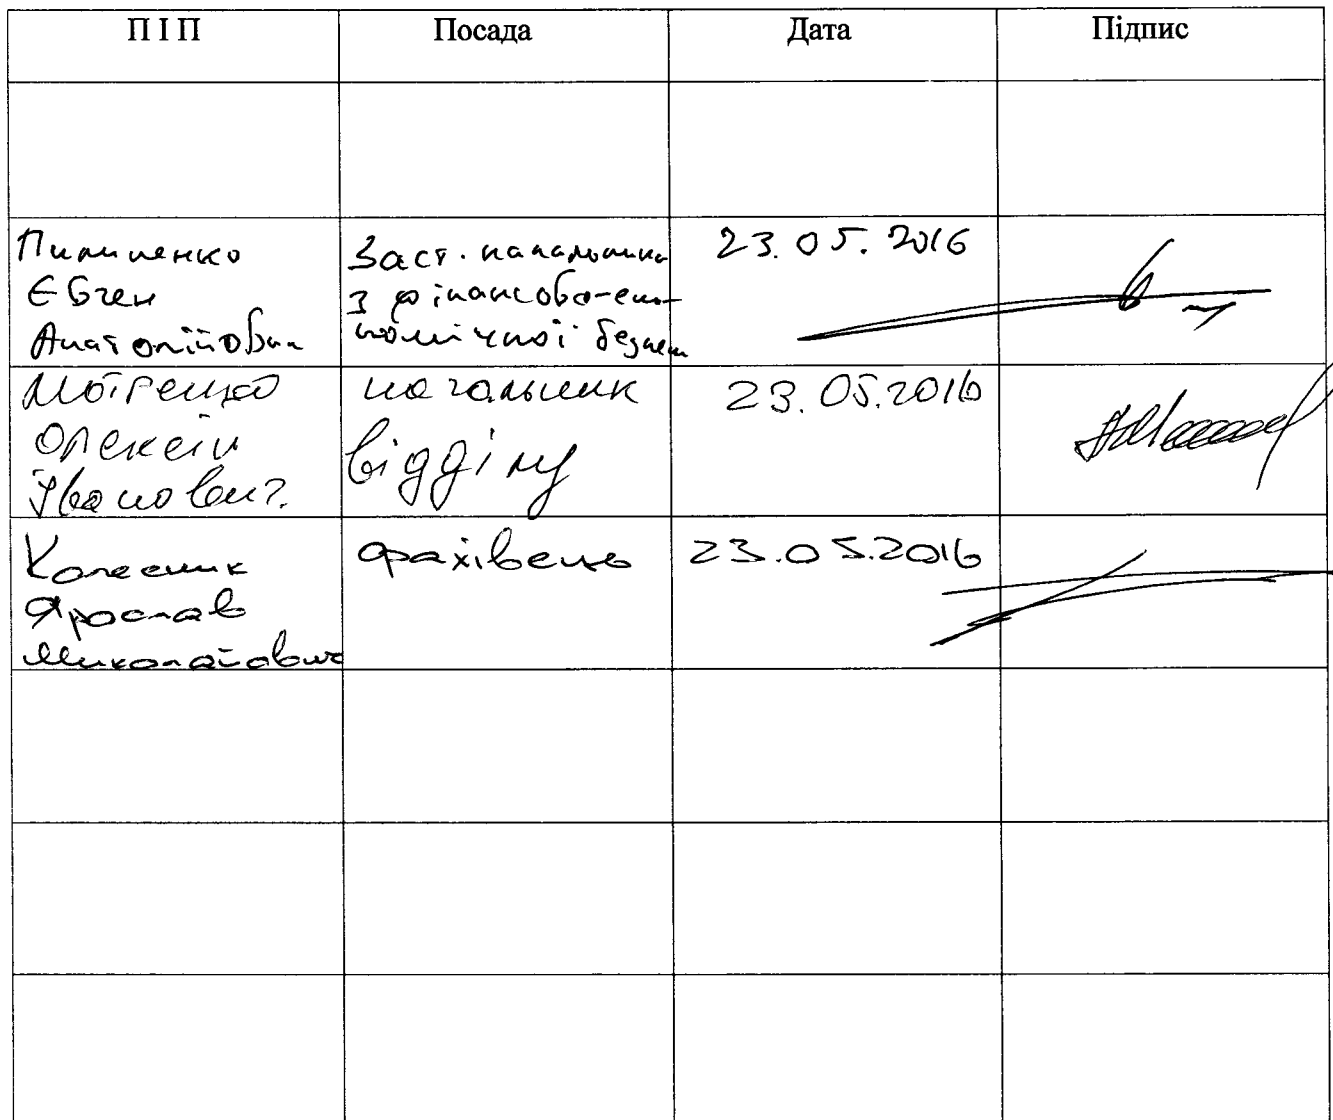 П І П Посада Дата Підпис
Пилипенко
Євген
Анатолійович
Заст. начальника
з фінансово-еко-
номічної безпеки
23.05.2016
Мотренко
Олексій
Іванович
начальник
відділу
23.05.2016
Колесник
Ярослав
Миколайович
фахівець
23.05.2016